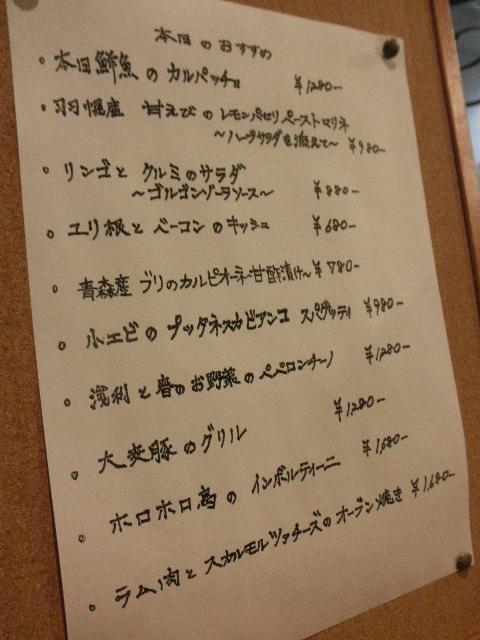 本日のおすすめ
・本日鮮魚のカルパッチョ ¥1280-
・羽幌産 甘えびのレモンパセリペーストマリネ
～ハーブサラダを添えて～ ¥980-
・リンゴとクルミのサラダ
～ゴルゴンゾーラソース～ ¥880-
・ユリ根とベーコンのキッシュ ¥680-
・青森産 ブリのカルピオーネ～甘酢漬け～ ¥780-
・小エビのプッタネスカビアンコ スパゲッティ ¥980-
・浅利と春のお野菜のペペロンチーノ ¥1280-
・大麦豚のグリル ¥1280-
・ホロホロ鳥のインボルティーニ ¥1,680-
・ラム肉とスカルモルツァチーズのオーブン焼き ¥1,680-